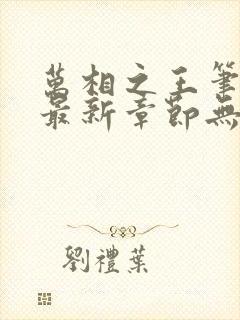 萬相之王筆
最新章節無
劉禮葉